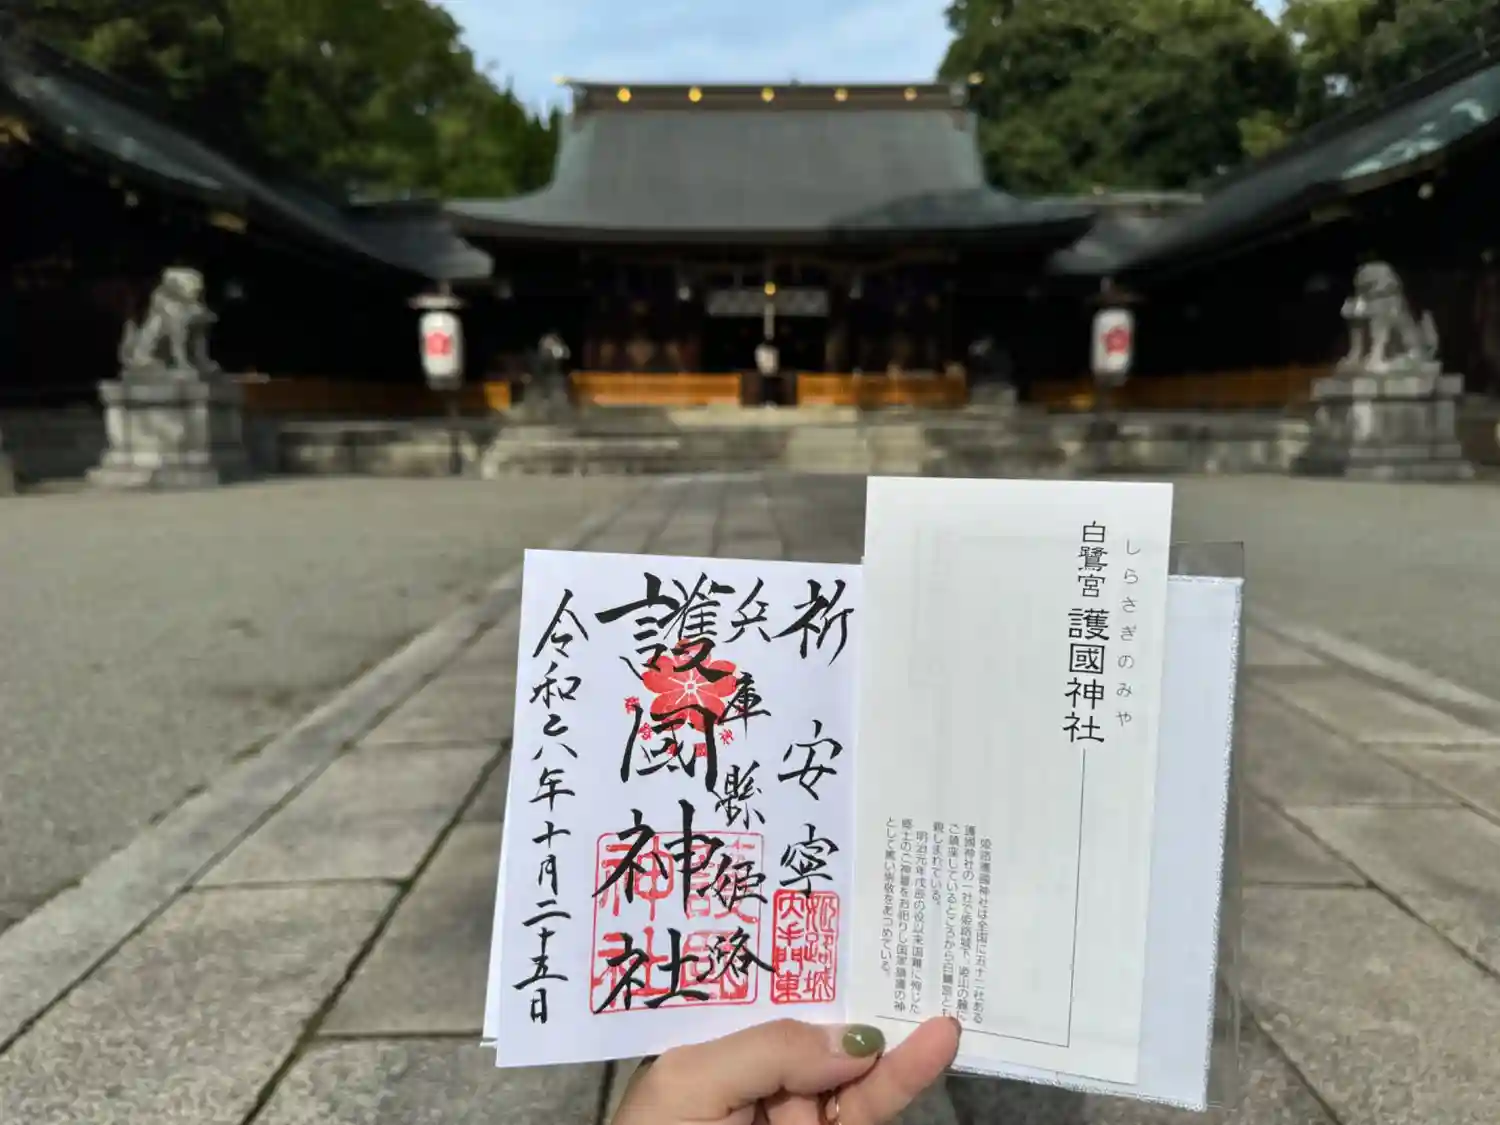 しらさぎのみや
白鷺宮 護國神社
姫路護國神社は全国に五十二社ある
護國神社の一社で姫路城下、姫山の麓に
ご鎮座しているところから白鷺宮とも
親しまれている。
明治元年戊辰の役以来国難に殉じた
郷土のご神霊をお祀りし国家鎮護の神
として篤い崇敬をあつめている。
祈安寧
兵庫縣姫路
護國神社
令和六年十月二十五日
姫路城
大手門東
護國
神社